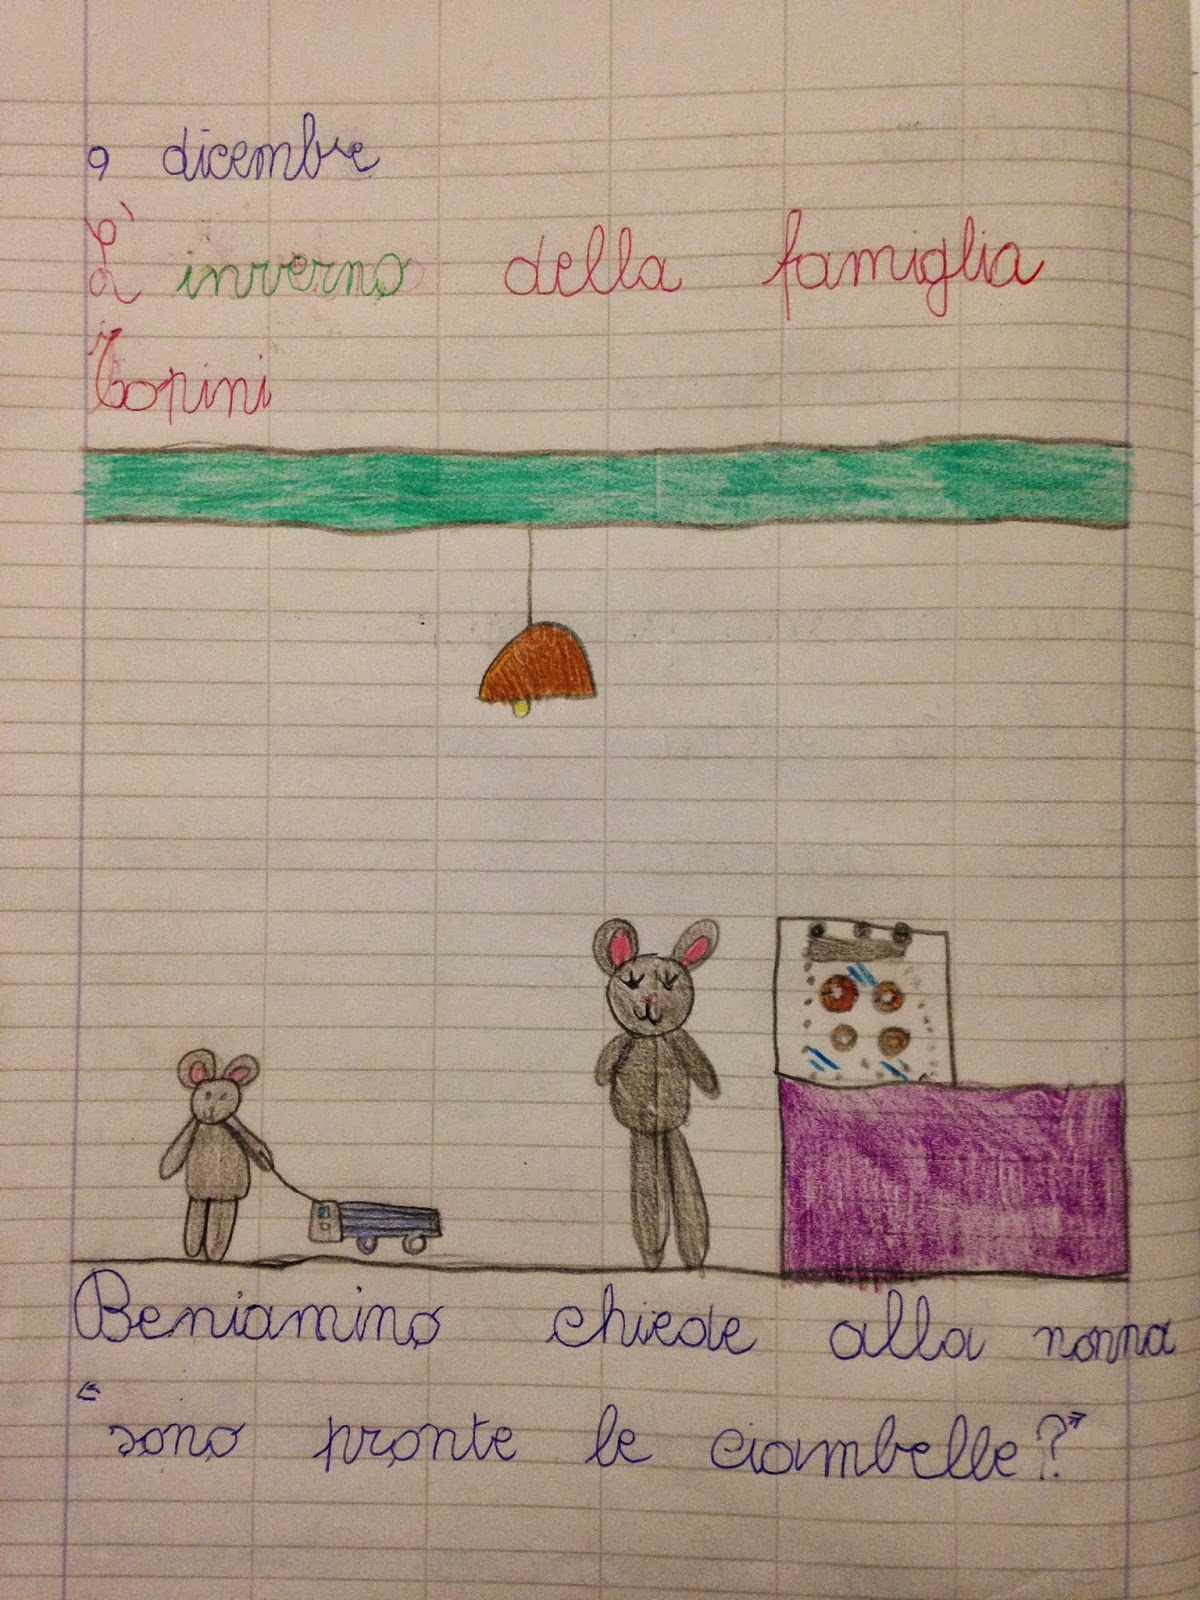 9 dicembre
L'inverno della famiglia
Topini
Beniamino chiede alla nonna
"sono pronte le ciambelle?"